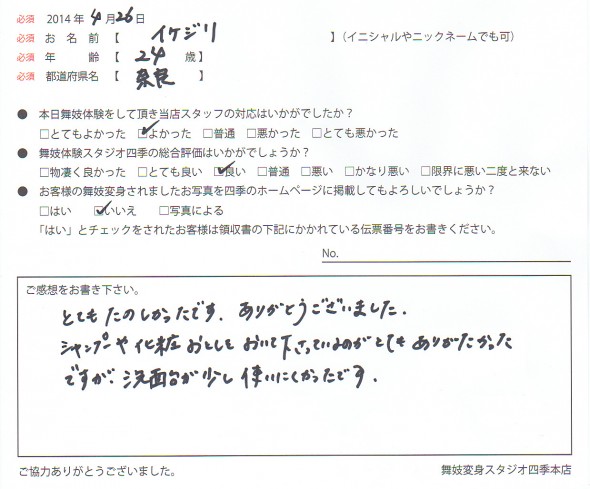 必須 2014 年 4 月 26 日
必須 お 名 前 【 イケジリ 】（イニシャルやニックネームでも可）
必須 年 齢 【 24 歳】
必須 都道府県名 【 奈良 】
● 本日舞妓体験をして頂き当店スタッフの対応はいかがでしたか？
□とてもよかった ☑よかった □普通 □悪かった □とても悪かった
● 舞妓体験スタジオ四季の総合評価はいかがでしょうか？
□物凄く良かった □とても良い ☑良い □普通 □悪い □かなり悪い □限界に悪い二度と来ない
● お客様の舞妓変身されましたお写真を四季のホームページに掲載してもよろしいでしょうか？
□はい ☑いいえ □写真による
「はい」とチェックをされたお客様は領収書の下記にかかれている伝票番号をお書きください。
No.
ご感想をお書き下さい。
とても たのしかったです. ありがとうございました.
シャンプーや 化粧 おとしを おいて下さっているのがとても ありがたかった
ですが. 洗面台が少し 使いにくかったです.
ご協力ありがとうございました。
舞妓変身スタジオ四季本店